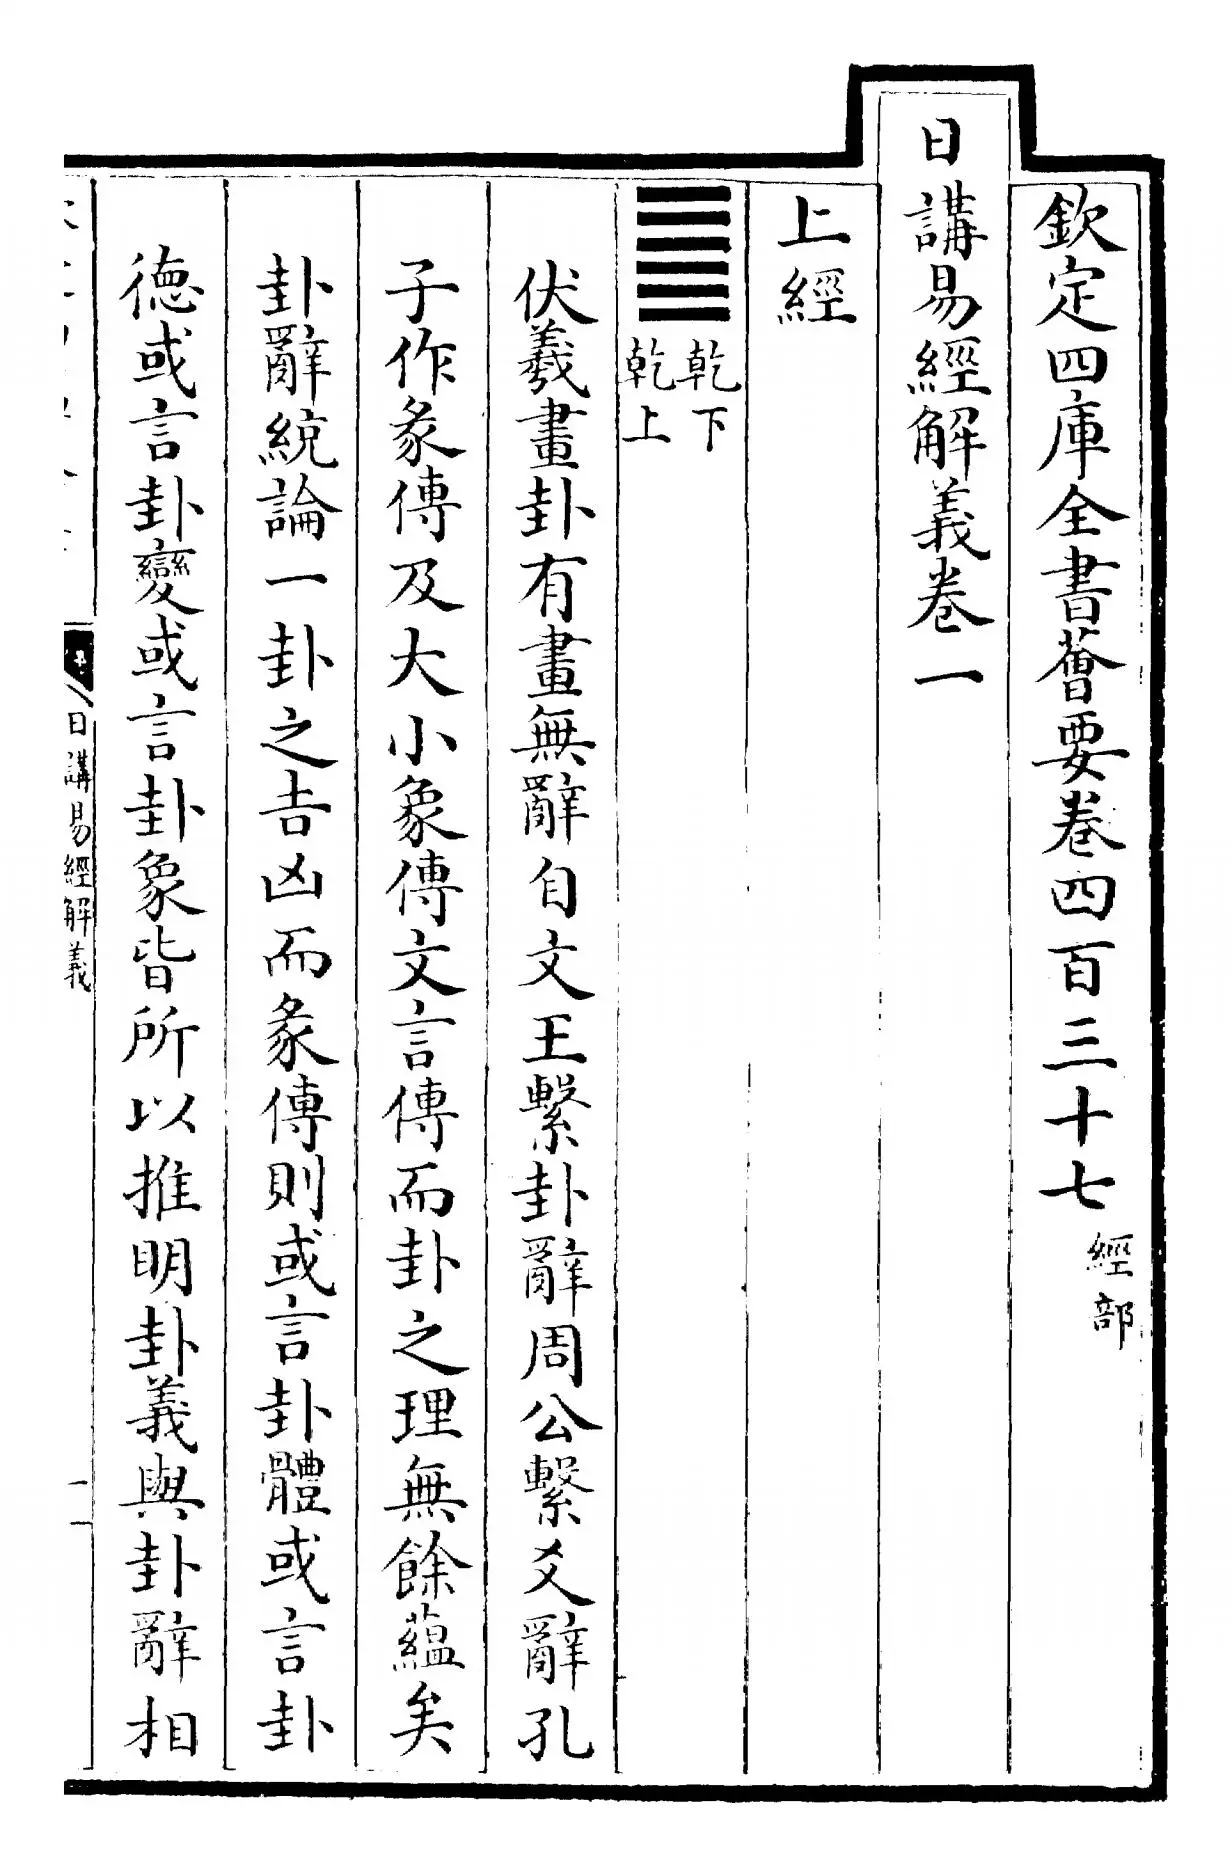 欽定四庫全書薈要卷四百三十七 經部
日講易經解義卷一
上經
䷀ 乾下
乾上
伏羲畫卦有畫無辭自文王繫卦辭周公繫爻辭孔
子作彖傳及大小象傳文言傳而卦之理無餘蘊矣
卦辭統論一卦之吉凶而彖傳則或言卦體或言卦
德或言卦變或言卦象皆所以推明卦義與卦辭相
日講易經解義
一